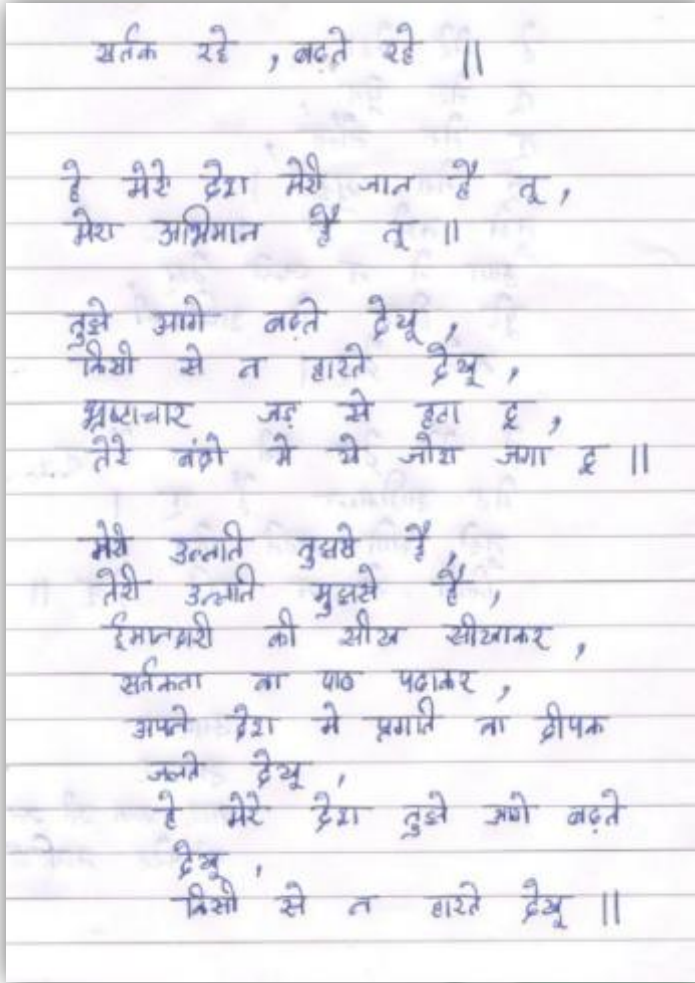 सर्तक रहे , बढ़ते रहे ||
हे मेरे देश मेरी जान है तू ,
मेरा अभिमान है तू ||
तुझे आगे बढ़ते देखू ,
किसी से न हारते देखू ,
भ्रष्टाचार जड़ से हटा दू ,
तेरे बंदो मे ये जोश जगा दू ||
मेरी उन्नति तुझसे है ,
तेरी उन्नति मुझसे है ,
ईमानदारी की सीख सीखाकर ,
सर्तकता का पाठ पढाकर ,
अपने देश मे प्रगति का दीपक
जलते देखू ,
हे मेरे देश तुझे आगे बढ़ते
देखू ,
किसी से न हारते देखू ||